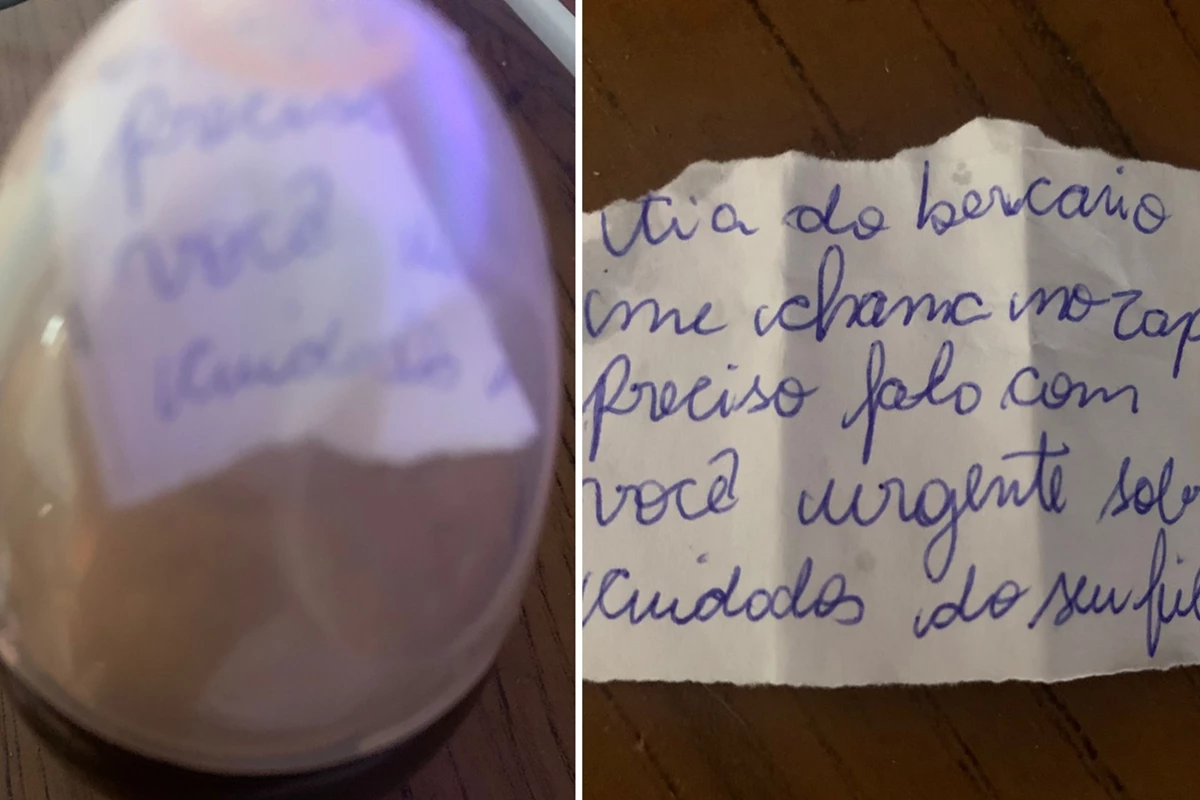 Precisa
você
cuidados
tia do bercario
me chama no zap
Preciso falo com
você urgente sob
cuidodos do seu fil